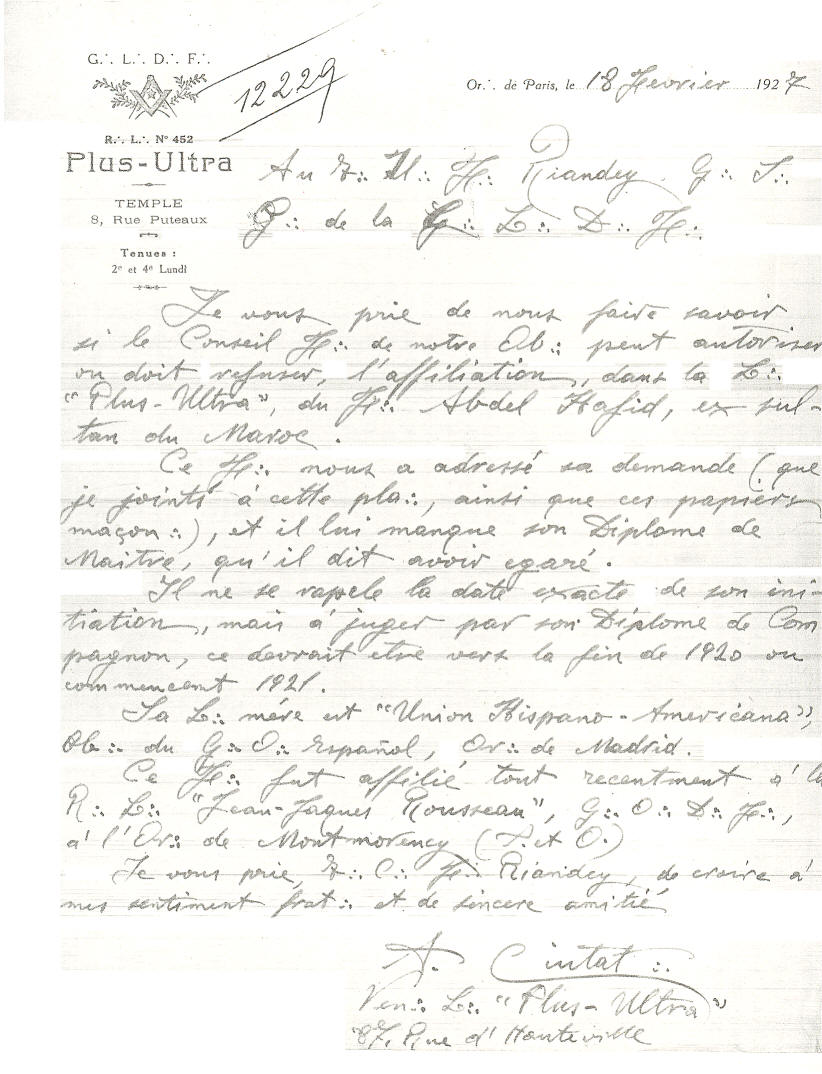 G∴ L∴ D∴ F∴
12229
Or∴ de Paris, le 18 Fevrier 1927
R∴ L∴ N° 452
Plus-Ultra
TEMPLE
8, Rue Puteaux
Tenues :
2e et 4e Lundi
Au T∴ Ill∴ F∴ Riandey G∴ S∴
G∴ de la G∴ L∴ D∴ F∴
Je vous prie de nous faire savoir
si le Conseil F∴ de notre Ob∴ peut autoriser
ou doit refuser, l'affiliation, dans la L∴
"Plus-Ultra", du F∴ Abdel Hafid, ex sul-
tan du Maroc.
Ce F∴ nous a adressé sa demande (que
je joints à cette pla∴, ainsi que ces papiers
maçon∴), et il lui manque son Diplome de
Maitre, qu'il dit avoir egaré.
Il ne se rapele la date exacte de son ini-
tiation, mais à juger par son Diplome de Com
pagnon, ce devrait etre vers la fin de 1920 ou
commencemt 1921.
Sa L∴ mére est "Union Hispano-Americana",
Ob∴ du G∴ O∴ Español, Or∴ de Madrid.
Ce F∴ fut affilié tout recentment à la
R∴ L∴ "Jean-Jaques Rousseau", G∴ O∴ D∴ F∴,
à l'Or∴ de Montmorency (S. et O.)
Je vous prie, T∴ C∴ F∴ Riandey, de croire à
mes sentiment frat∴ et de sincere amitié
A. Ciutat ∴
Ven∴ L∴ "Plus-Ultra"
87, Rue d'Hauteville